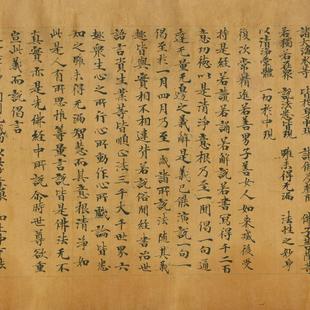 諸大海水等 皆於身中現
若獨若在衆 說法悉皆現 雖未得無漏 法性之妙身
以清淨常體 一切於中現
復次常精進若善男子善女人如來滅後受
持是經若讀若誦若解說若書寫得千二百
意功德以是清淨意根乃至聞一偈一句通
達無量無邊之義解是義已能演說一句一
偈至於一月四月乃至一歲諸所說法隨其義
趣皆與實相不相違背若說俗間經書治世
語言資生業等皆順正法三千大千世界六
趣衆生心之所行心所動作心所戲論皆悉
知之雖未得無漏智慧而其意根清淨如
此是人有所思惟籌量言說皆是佛法無不
真實亦是先佛經中所說爾時世尊欲重
宣此義而說偈言